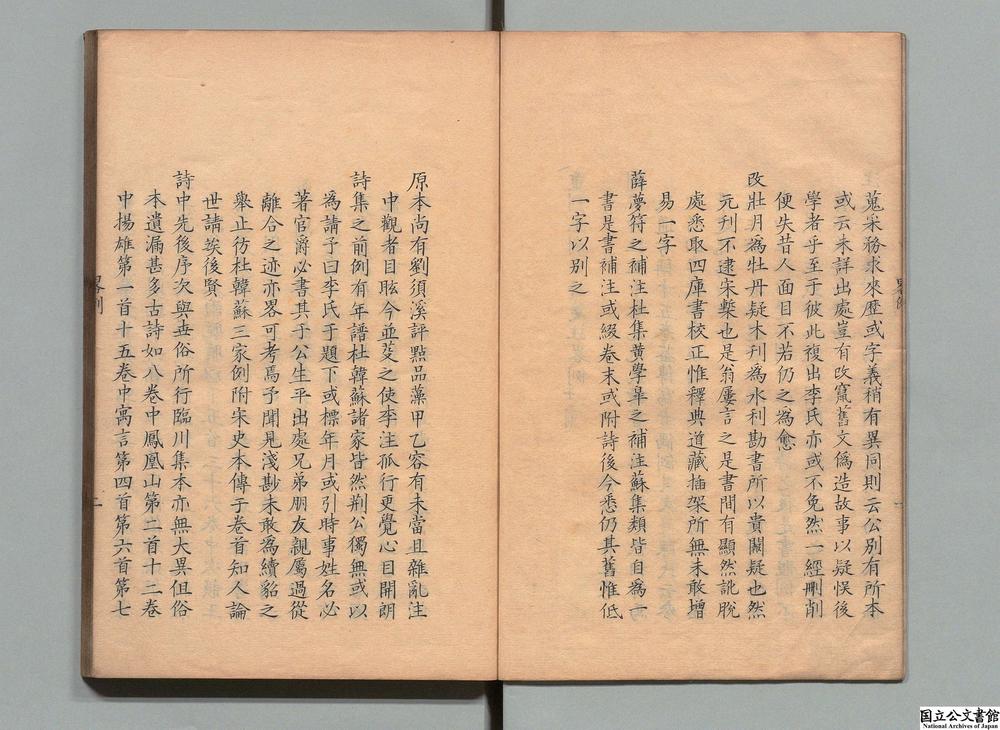 蒐采務求來歷或字義稍有異同則云公別有所本
或云未詳出處豈有改竄舊文僞造故事以疑悞後
學者乎至于彼此複出李氏亦或不免然一經刪削
便失昔人面目不若仍之為愈
改牡月為牡丹疑木刋為水利勘書所以貴闕疑也然
元刋不逮宋槧也是翁屢言之是書間有顯然訛脫
處悉取四庫書校正惟釋典道藏插架所無未敢增
易一字
薛夢符之補注杜集黃學皐之補注蘇集類皆自為一
書是書補注或綴卷末或附詩後今悉仍其舊惟低
一字以別之
畧例
一
原本尚有劉須溪評點品藻甲乙容有未當且雜亂注
中觀者目眩今並芟之使李注孤行更覺心目開朗
詩集之前例有年譜杜韓蘇諸家皆然荆公獨無或以
為請予曰李氏于題下或標年月或引時事姓名必
著官爵必書其于公生平出處兄弟朋友親屬過從
離合之迹亦畧可考焉予聞見淺尠未敢為續貂之
舉止彷杜韓蘇三家例附宋史本傳于卷首知人論
世請矣後賢
詩中先後序次與世俗所行臨川集本亦無大異但俗
本遺漏甚多古詩如八卷中鳳凰山第二首十二卷
中揚雄第一首十五卷中寓言第四首第六首第七
畧例
二
国立公文書館
National Archives of Japan